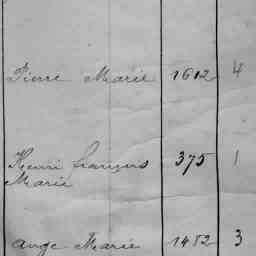 Pierre Marie 1612 4
Henri françois 375 1
Marie
Ange Marie 1452 3